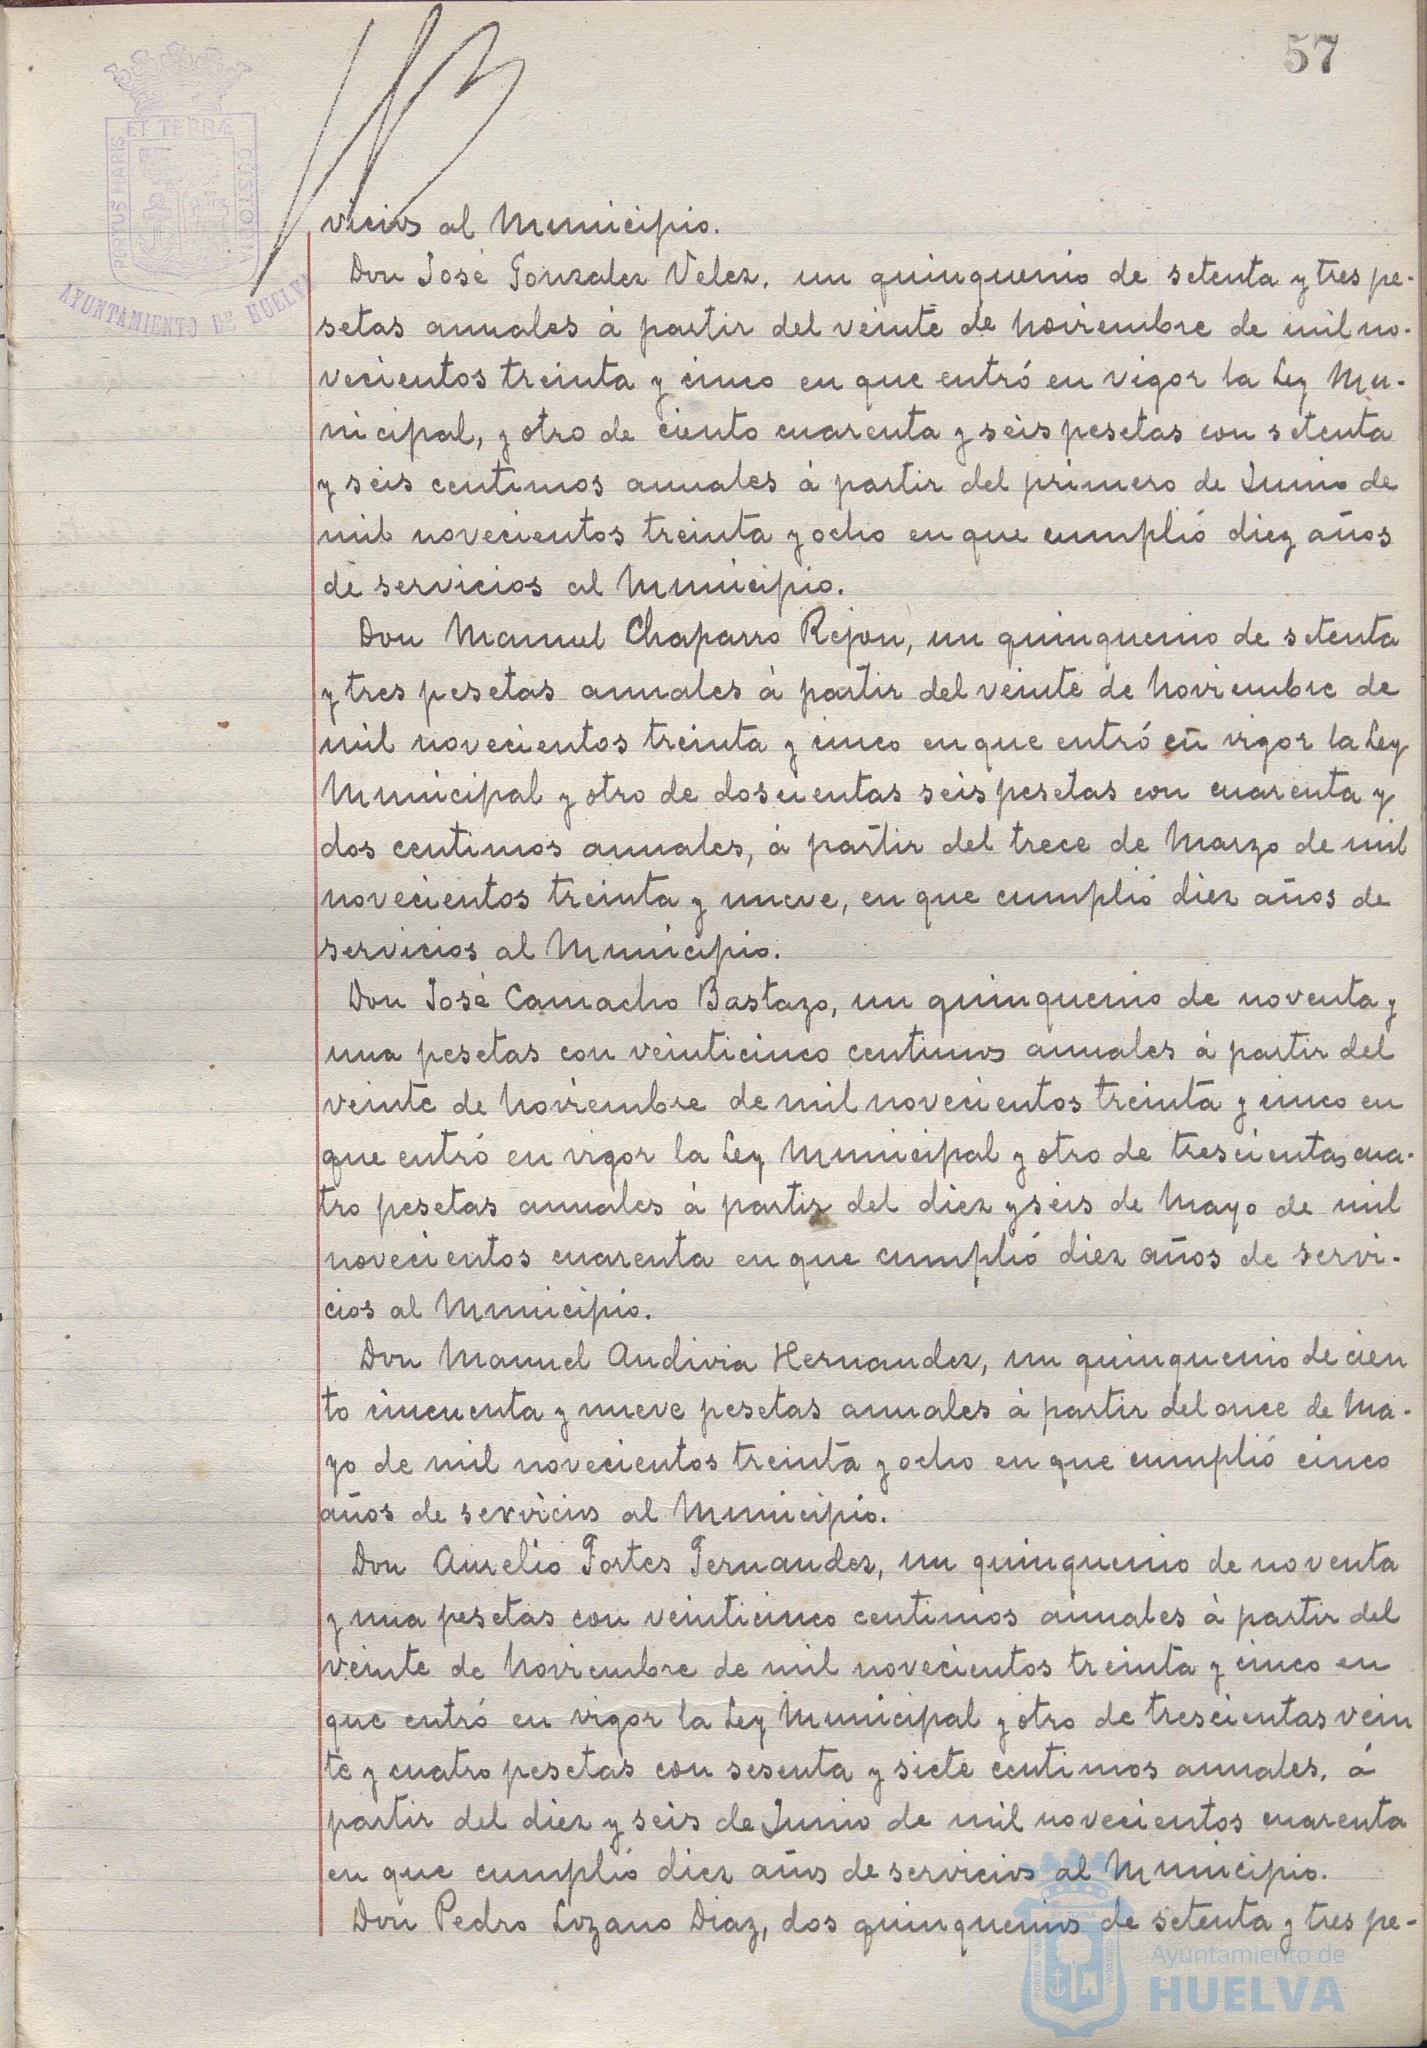 57
PORTUS MARIS
ET TERRÆ
CUSTODIA
AYUNTAMIENTO DE HUELVA
vicios al Municipio.
Don José Gonzalez Velez, un quinquenio de setenta y tres pe-
setas anuales á partir del veinte de Noviembre de mil no-
vecientos treinta y cinco en que entró en vigor la Ley Mu-
nicipal, y otro de ciento cuarenta y seis pesetas con setenta
y seis centimos anuales á partir del primero de Junio de
mil novecientos treinta y ocho en que cumplió diez años
de servicios al Municipio.
Don Manuel Chaparro Rejon, un quinquenio de setenta
y tres pesetas anuales á partir del veinte de Noviembre de
mil novecientos treinta y cinco en que entró en vigor la Ley
Municipal y otro de doscientas seis pesetas con cuarenta y
dos centimos anuales, á partir del trece de Marzo de mil
novecientos treinta y nueve, en que cumplió diez años de
servicios al Municipio.
Don José Camacho Bastazo, un quinquenio de noventa y
una pesetas con veinticinco centimos anuales á partir del
veinte de Noviembre de mil novecientos treinta y cinco en
que entró en vigor la Ley Municipal y otro de trescientas cua-
tro pesetas anuales á partir del diez y seis de Mayo de mil
novecientos cuarenta en que cumplió diez años de servi-
cios al Municipio.
Don Manuel Andivia Hernandez, un quinquenio de cien
to cincuenta y nueve pesetas anuales á partir del once de Ma-
yo de mil novecientos treinta y ocho en que cumplió cinco
años de servicios al Municipio.
Don Aurelio Fortes Fernandez, un quinquenio de noventa
y una pesetas con veinticinco centimos anuales á partir del
veinte de Noviembre de mil novecientos treinta y cinco en
que entró en vigor la Ley Municipal y otro de trescientas vein
te y cuatro pesetas con sesenta y siete centimos anuales, á
partir del diez y seis de Junio de mil novecientos cuarenta
en que cumplió diez años de servicios al Municipio.
Don Pedro Lozano Diaz, dos quinquenios de setenta y tres pe-
Ayuntamiento de
HUELVA